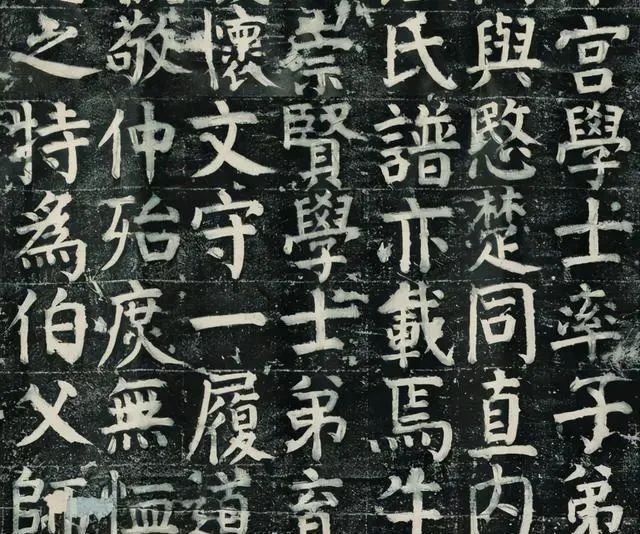 宮學士率子弟
與愍楚同直內
氏譜亦載焉牛
崇賢學士弟育
懷文守一履道
敬仲殆庶無恤
之特為伯父師